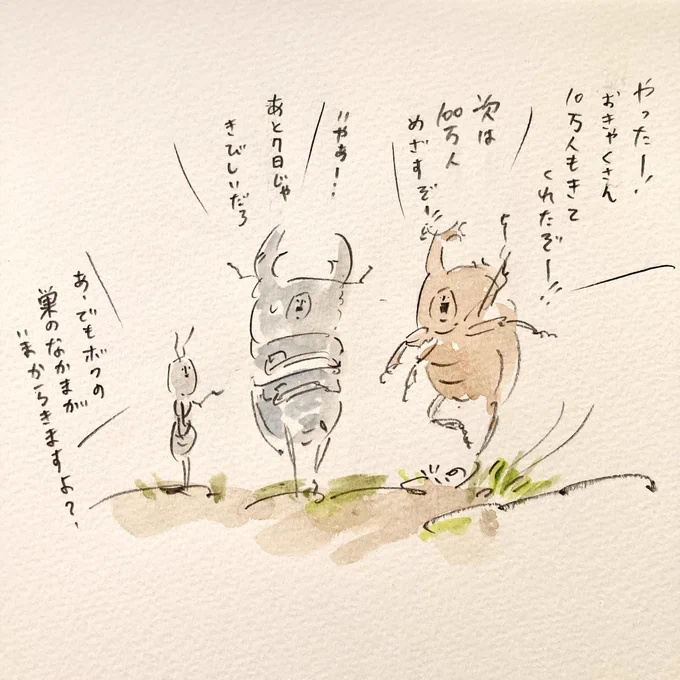 やったー!
おきゃくさん
10万人もきて
くれたぞー!!
次は
100万人
めざすぞー!!
いやぁー…
あと7日じゃ
きびしいだろ
あ、でもボクの
巣のなかまが
いまからきますよ?